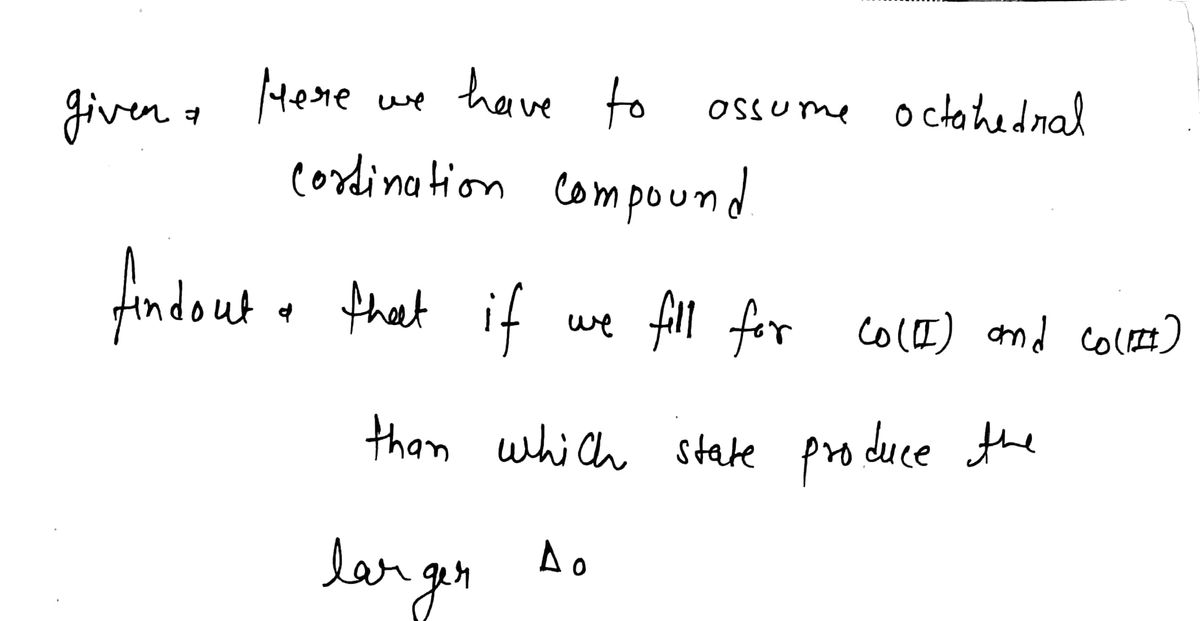 given → Here we have to assume octahedral
cordination compound
findout → that if we fill for Co(II) and Co(III)
than which state produce the
larger Δo